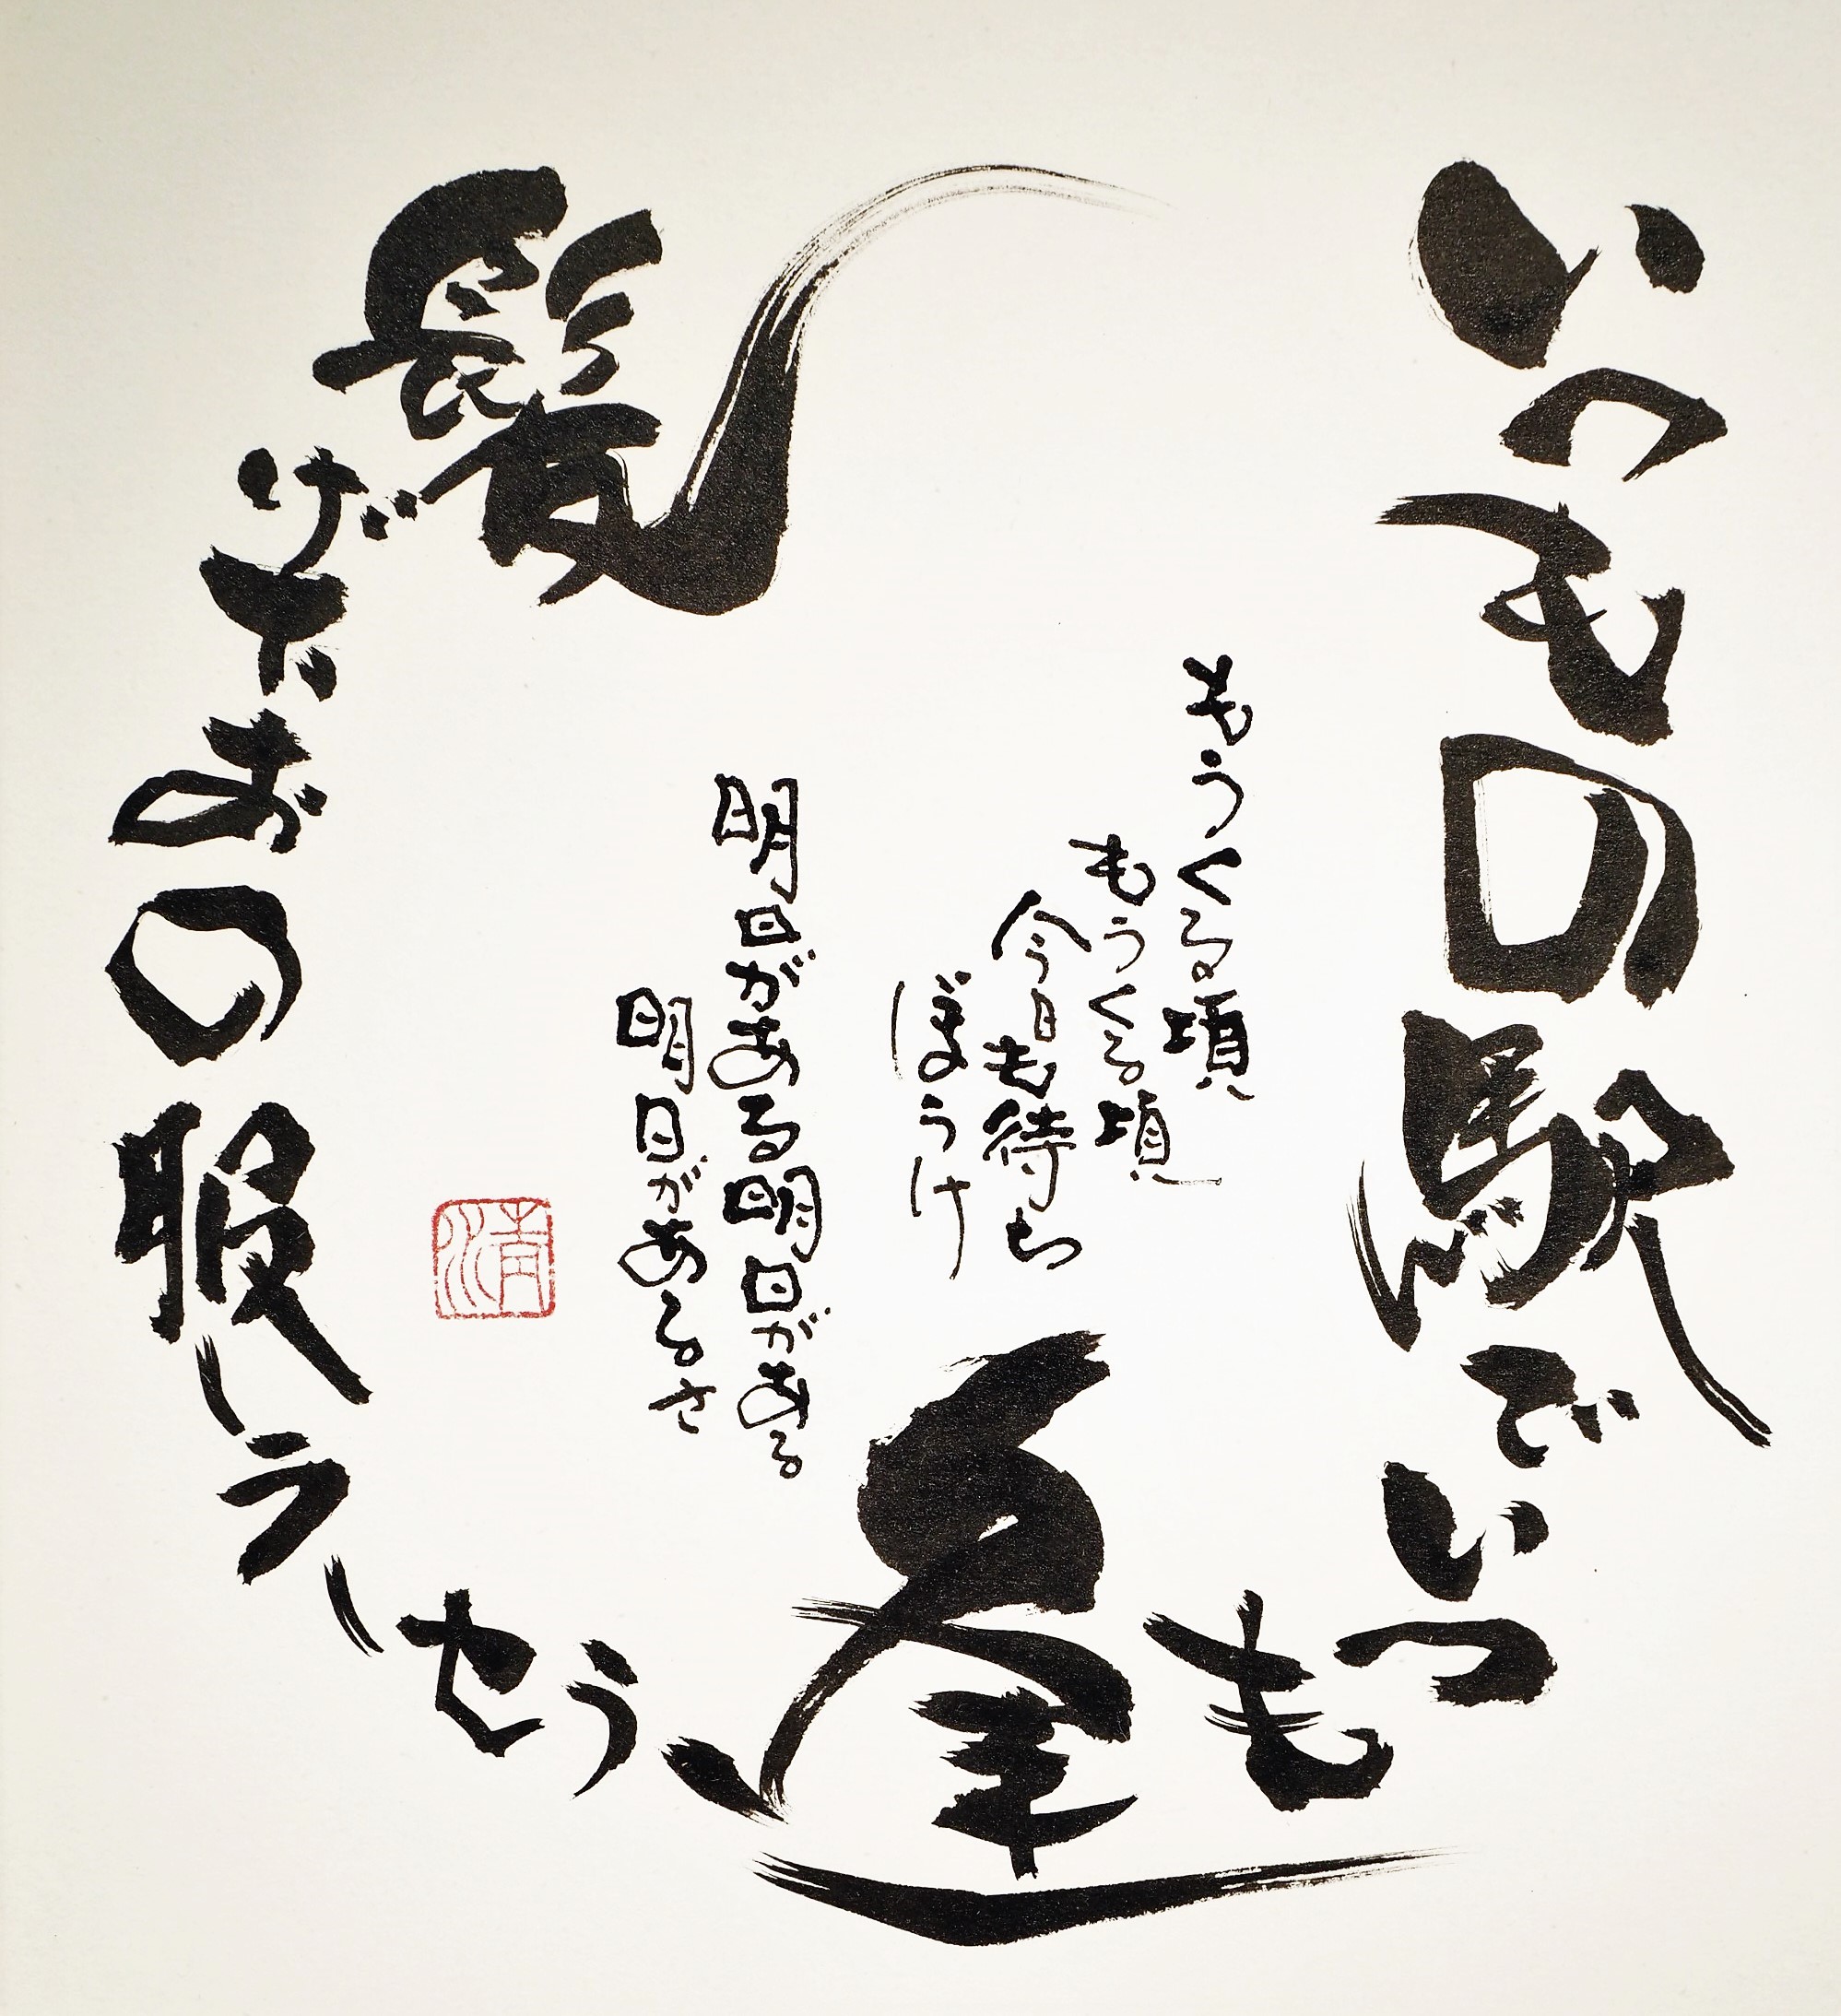 いつもの駅でいつも逢うセーラー服のお下げ髪
もうくる頃
もうくる頃
今日も待ち
ぼうけ
明日がある明日がある
明日があるさ
清